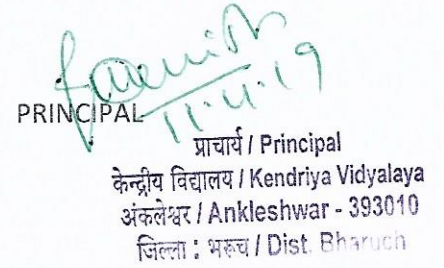 11.4.19
PRINCIPAL
प्राचार्य / Principal
केन्द्रीय विद्यालय / Kendriya Vidyalaya
अंकलेश्वर / Ankleshwar - 393010
जिल्ला : भरूच / Dist. Bharuch